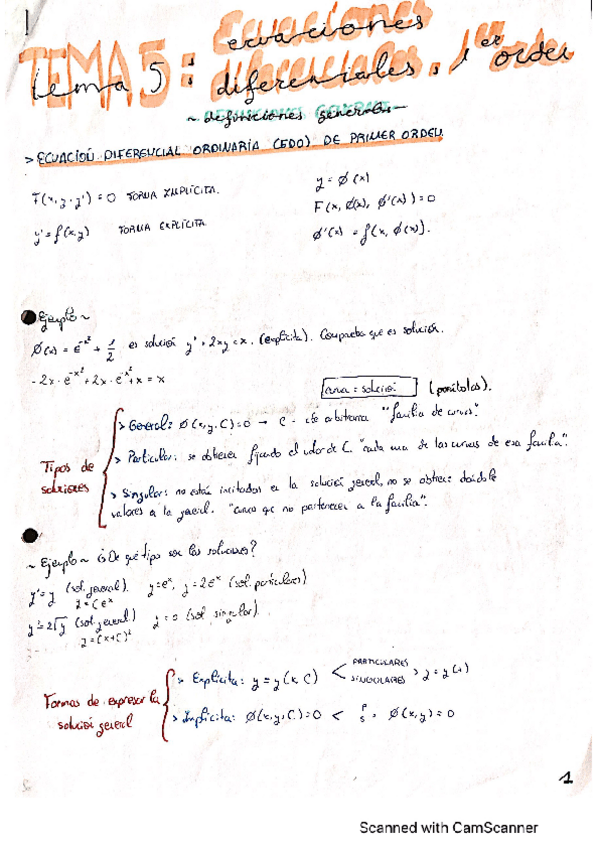 TEMA 5: Ecuaciones
tema 5: ecuaciones diferenciales, 1er orden
~ definiciones generales ~
> ECUACIÓN DIFERENCIAL ORDINARIA (EDO) DE PRIMER ORDEN.
F(x, y, y') = 0 FORMA IMPLÍCITA.
y' = f(x,y) FORMA EXPLÍCITA
y = φ(x)
F(x, φ(x), φ'(x)) = 0
φ'(x) = f(x, φ(x)).
Ejemplo ~
φ(x) = e^-x² + 1/2 es solución y' + 2xy = x. (explícita). Comprueba que es solución.
-2x · e^-x² + 2x · e^-x² + x = x
curva = solución (parábolas).
Tipos de soluciones
> General: φ(x,y,C) = 0 → C - cte arbitraria "familia de curvas".
> Particular: se obtienen fijando el valor de C. "cada una de las curvas de esa familia".
> Singular: no están incluidas en la solución general, no se obtiene dándole
valores a la general. "curvas que no pertenecen a la familia".
~ Ejemplo ~ ¿De qué tipo son las soluciones?
y' = y (sol. general) y = e^x, y = 2e^x (sol. particulares)
y = Ce^x
y' = 2√y (sol. general) y = 0 (sol. singular).
y = (x+C)²
Formas de expresar la solución general
> Explícita: y = y(x, C) < PARTICULARES SINGULARES > y = y(x)
> Implícita: φ(x,y,C) = 0 < P S > φ(x,y) = 0
1
Scanned with CamScanner